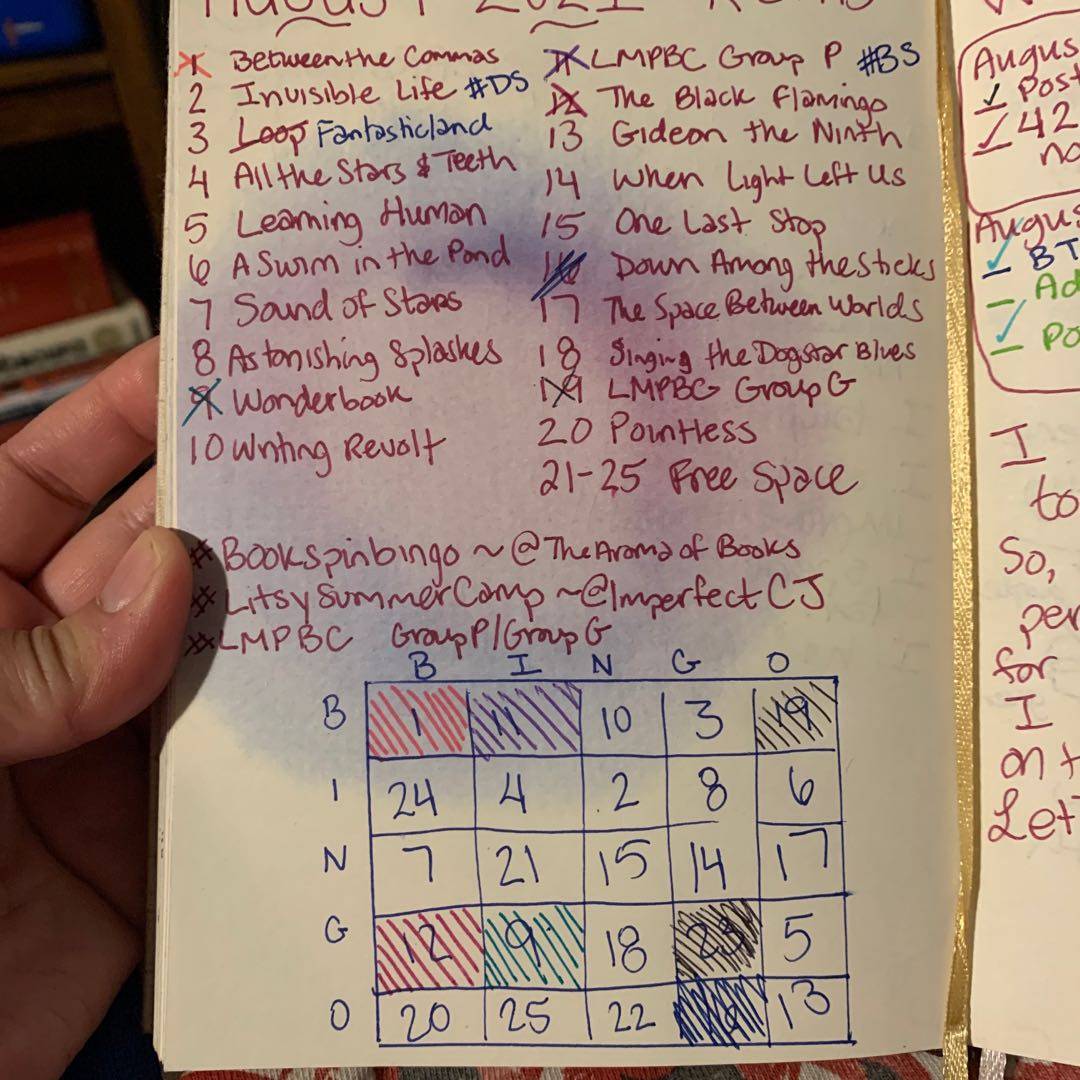 August 2021
1 Between the Commas
2 Invisible Life #DS
3 Loop Fantasticland
4 All the Stars & Teeth
5 Learning Human
6 A Swim in the Pond
7 Sound of Stars
8 Astonishing Splashes
9 Wonderbook
10 Writing Revolt
11 LMPBC Group P #BS
12 The Black Flamingo
13 Gideon the Ninth
14 When Light Left Us
15 One Last Stop
16 Down Among the Sticks
17 The Space Between Worlds
18 Singing the Dogstar Blues
19 LMPBG Group G
20 Pointless
21-25 Free Space
# Bookspinbingo ~ @TheAromaofBooks
# LitsySummerCamp ~@ImperfectCJ
# LMPBC Group P/Group G
B I N G O
B 1 11 10 3 19
I 24 4 2 8 6
N 7 21 15 14 17
G 12 9 18 23 5
O 20 25 22 13
Augus
Post
42
no
Augus
BT
Ad
Po
I
to
So,
per
for
I
on t
Let